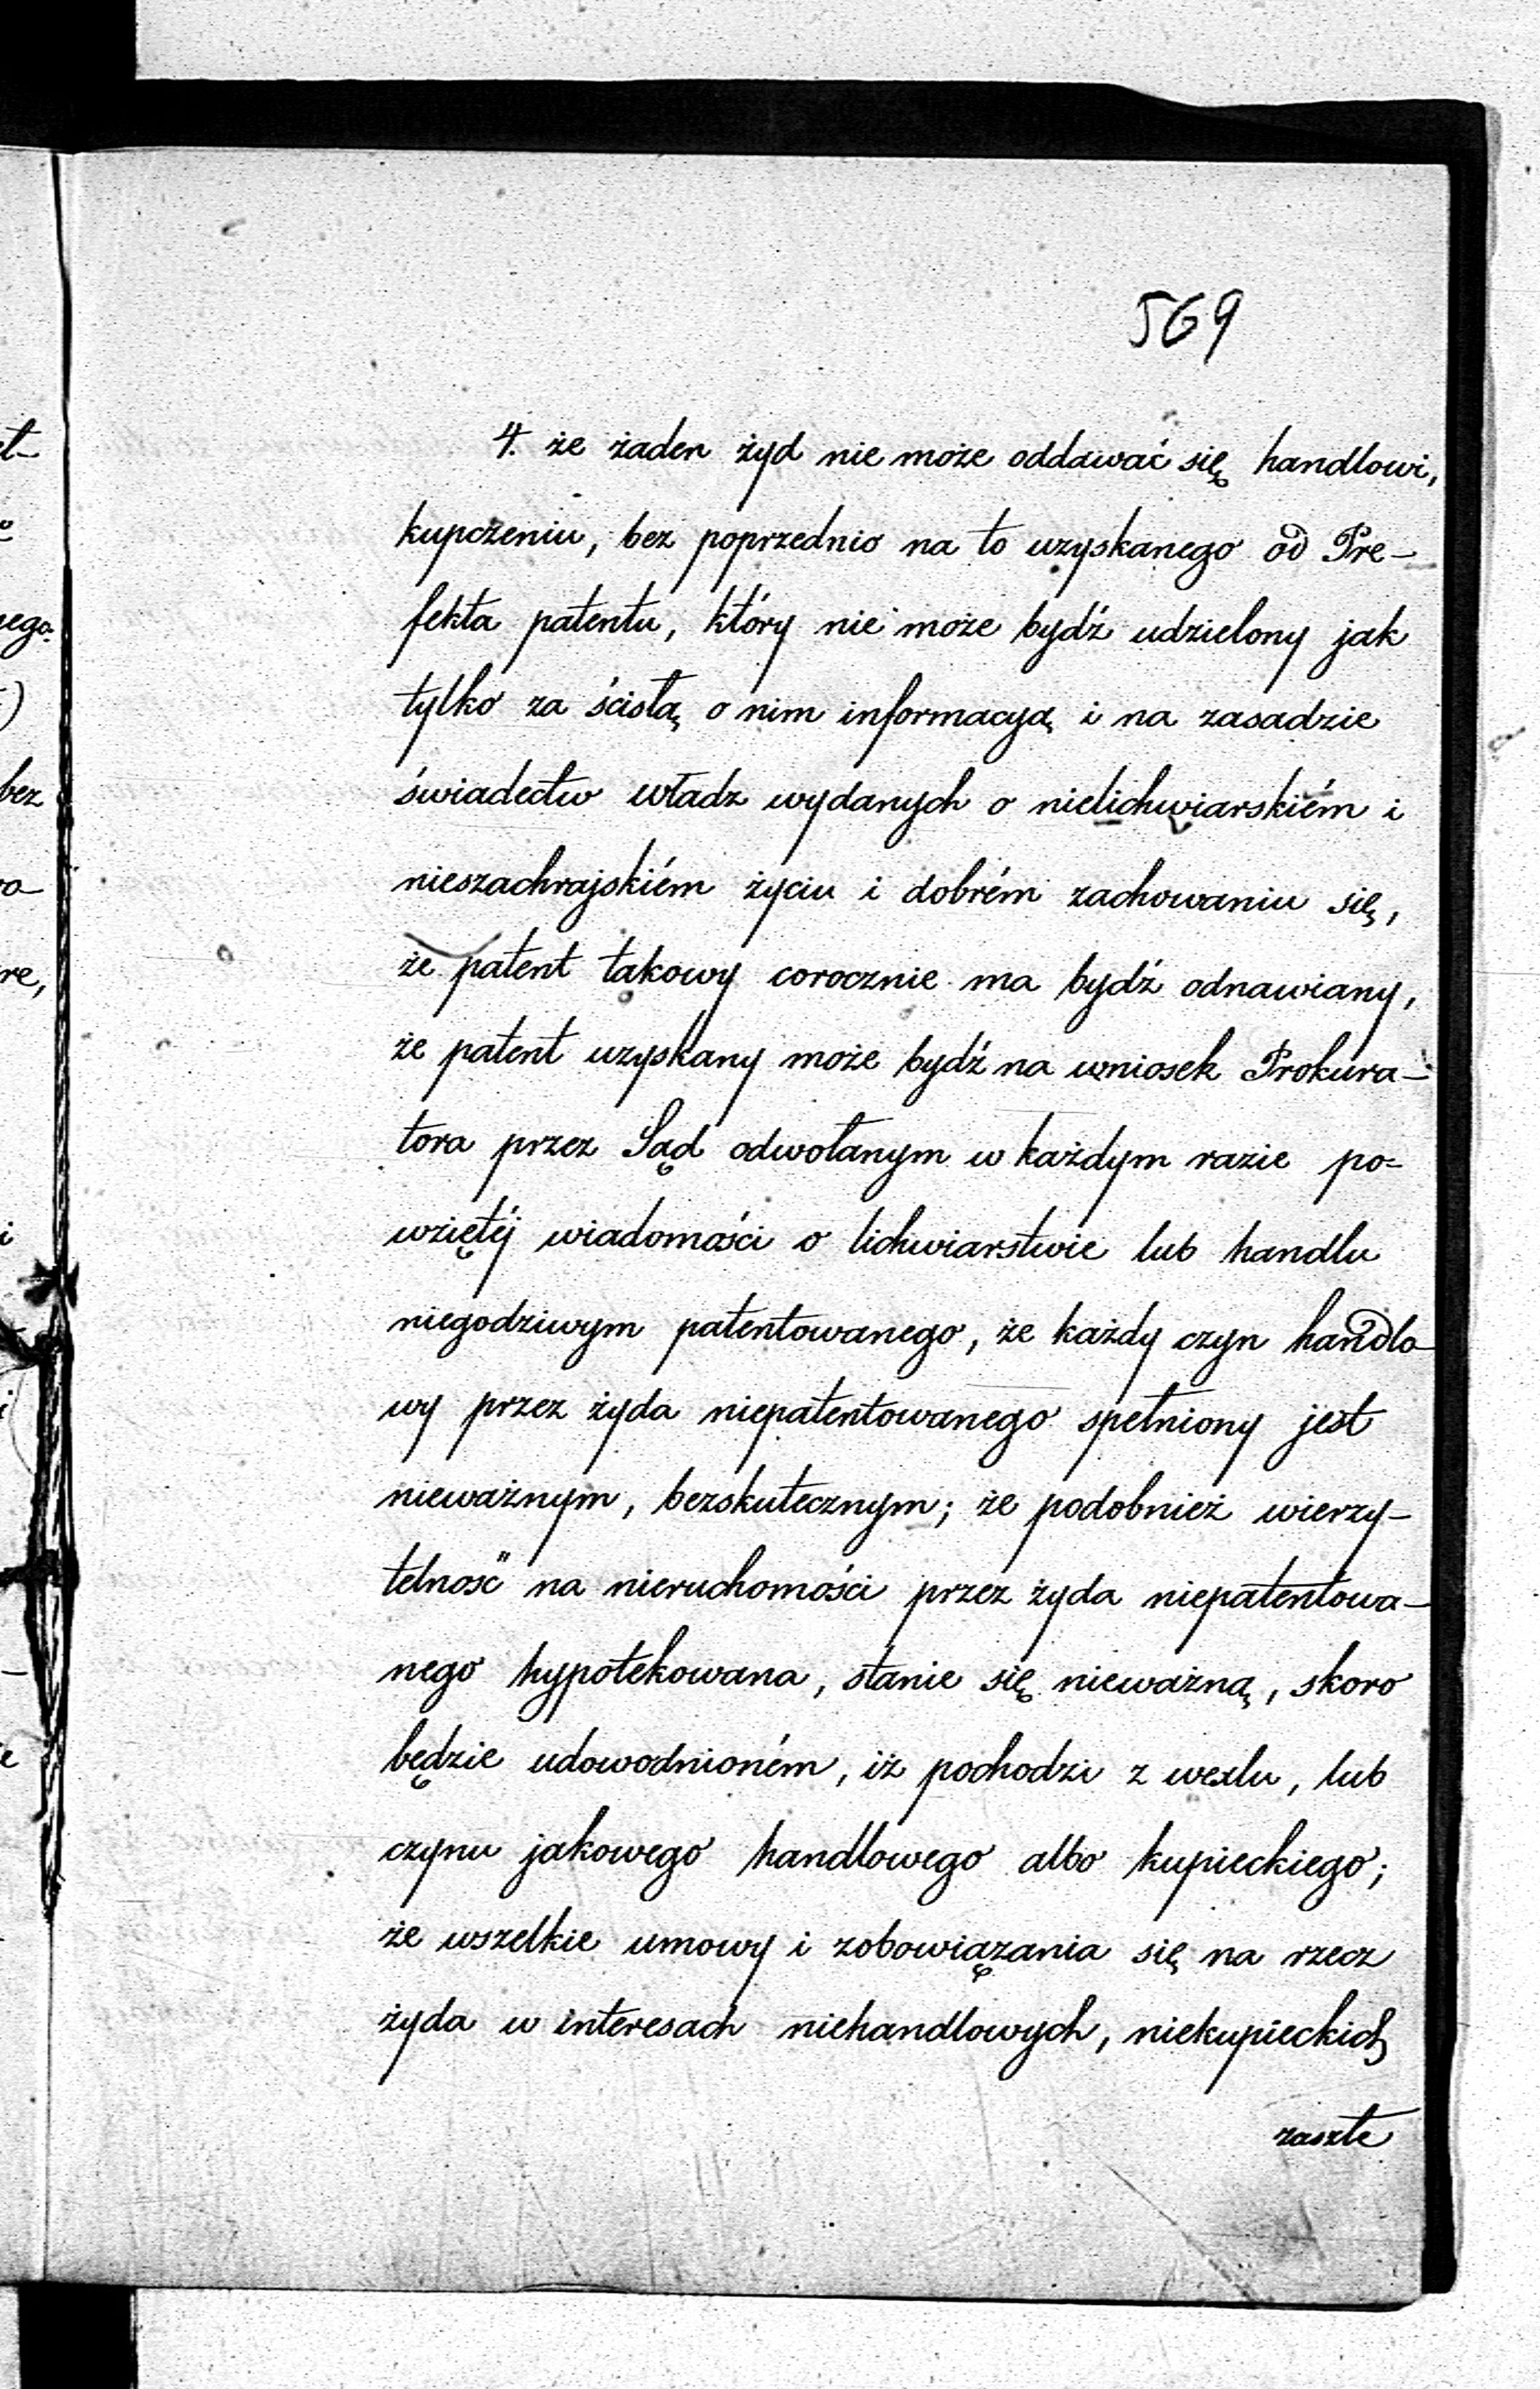 569
4. że żaden żyd nie może oddawać się handlowi,
kupczeniu, bez poprzednio na to uzyskanego od Pre-
fekta patentu, który nie może bydź udzielony jak
tylko za ścisłą o nim informacyą i na zasadzie
świadectw władz wydanych o nielichwiarskiém i
nieszachrajskiém życiu i dobrém zachowaniu się,
że patent takowy corocznie ma bydź odnawiany,
że patent uzyskany może bydź na wniosek Prokura-
tora przez Sąd odwołanym w każdym razie po-
wziętéj wiadomości o lichwiarstwie lub handlu
niegodziwym patentowanego, że każdy czyn handlo-
wy przez żyda niepatentowanego spełniony jest
nieważnym, bezskutecznym; że podobnież wierzy-
telność na nieruchomości przez żyda niepatentowa-
nego hypotekowana, stanie się nieważną, skoro
będzie udowodnioném, iż pochodzi z wexlu, lub
czynu jakowego handlowego albo kupieckiego;
że wszelkie umowy i zobowiązania się na rzecz
żyda w interesach niehandlowych, niekupieckich
zaszłe
et-
nego.
bez
re,
i